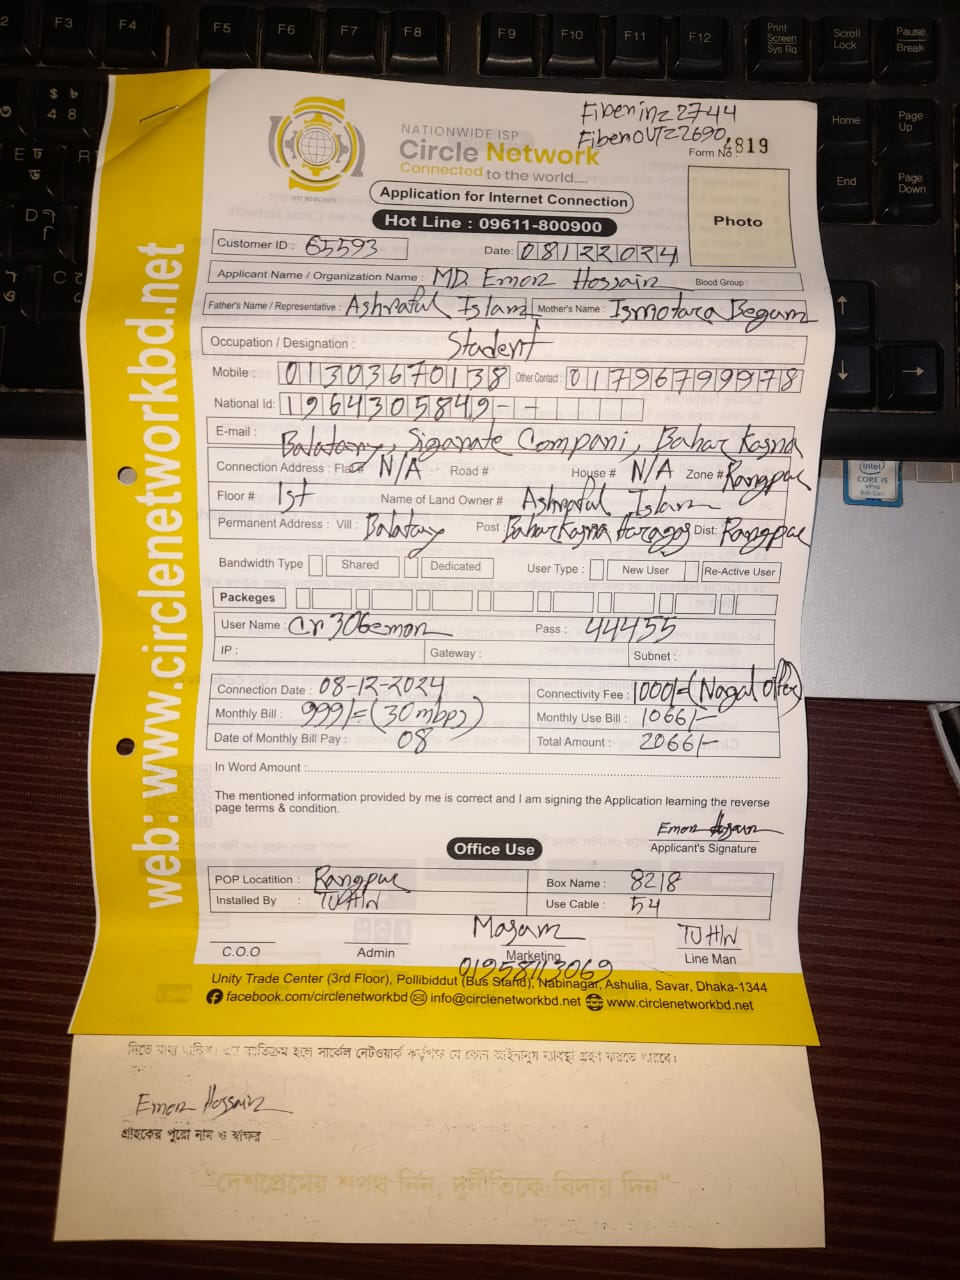 Fiber in = 2744
Fiber out = 2690
NATIONWIDE ISP
Circle Network
Connected to the world....
ISO 9001:2015
Form No : 4819
Application for Internet Connection
Hot Line : 09611-800900
Photo
Customer ID : 65593 Date: 08122024
Applicant Name / Organization Name : MD. Emon Hossain Blood Group :
Father's Name / Representative : Ashraful Islam Mother's Name : Ismotara Begum
Occupation / Designation : Student
Mobile : 01303670138 Other Contact : 01796799978
National Id: 1964305849--
E-mail : Balatary, Sigarate Compani, Bahar Kasna
Connection Address : Flat# N/A Road # House # N/A Zone # Rangpur
Floor # 1st Name of Land Owner # Ashraful Islam
Permanent Address : Vill : Balatary Post : Bahar Kasna Haragas Dist: Rangpur
Bandwidth Type Shared Dedicated User Type : New User Re-Active User
Packeges
User Name : cr306emon Pass : 44455
IP : Gateway : Subnet :
Connection Date : 08-12-2024 Connectivity Fee : 1000/= (Nagad offer)
Monthly Bill : 999/= (30 mbps) Monthly Use Bill : 1066/-
Date of Monthly Bill Pay : 08 Total Amount : 2066/-
In Word Amount :
The mentioned information provided by me is correct and I am signing the Application learning the reverse
page terms & condition.
Emon Hossain
Applicant's Signature
Office Use
POP Locatition : Rangpur Box Name : 8218
Installed By : TUHIN Use Cable : 54
Masum TUHIN
C.O.O Admin Marketing Line Man
01958113069
Unity Trade Center (3rd Floor), Pollibiddut (Bus Stand), Nabinagar, Ashulia, Savar, Dhaka-1344
facebook.com/circlenetworkbd info@circlenetworkbd.net www.circlenetworkbd.net
web: www.circlenetworkbd.net
Emon Hossain
গ্রাহকের পুরো নাম ও স্বাক্ষর
“দেশপ্রেমের শপথ নিন, দুর্নীতিকে বিদায় দিন”
F3 F4 F5 F6 F7 F8 F9 F10 F11 F12
Print Screen Sys Rq
Scroll Lock
Pause Break
Home
Page Up
End
Page Down
intel
CORE i5
vPro
8th Gen